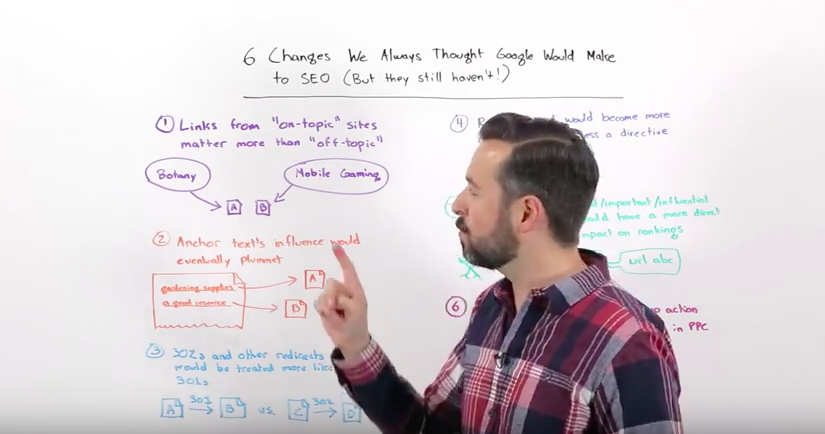 6 Changes We Always Thought Google Would Make
to SEO (But they still haven't!)
1 Links from "on-topic" sites
matter more than "off-topic"
Botany
Mobile Gaming
A
B
2 Anchor text's influence would
eventually plummet
gardening supplies
a good resource
A
B
3 302s and other redirects
would be treated more like
301s
A 301 B vs. C 302 D
4
would become more
a directive
/important/influential
have a more direct
impact on rankings
url abc
6
action
in PPC